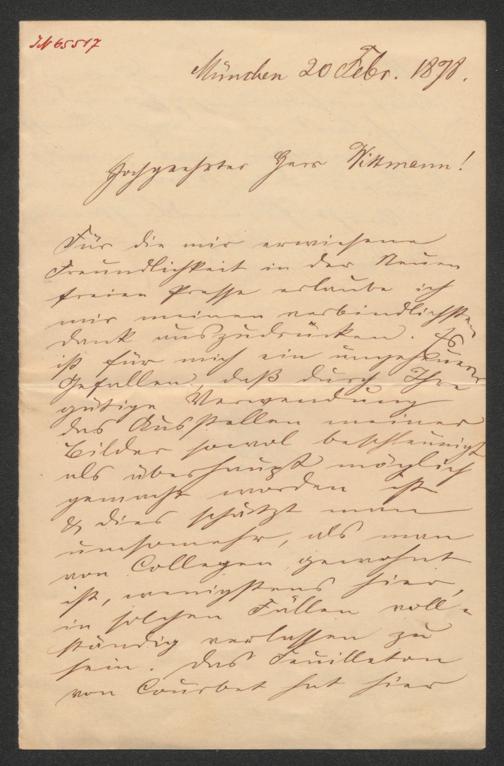 IN 65517
München 20 Febr. 1898.
Hochgeehrter Herr Wittmann!
Für die mir erwiesene
Freundlichkeit in der Neuen
freien Presse erlaube ich
mir meinen verbindlichsten
Dank auszudrücken. Es
ist für mich ein ungeheurer
Gefallen, daß durch Ihre
gütige Verwendung
das Ausstellen meiner
Bilder sowol beschleunigt
als überhaupt möglich
gemacht worden ist
& dies schätzt man
umsomehr, als man
von Collegen gewohnt
ist, wenigstens hier,
in solchen Fällen voll-
ständig verlassen zu
sein. Das Feuilleton
von Courbet hat hier